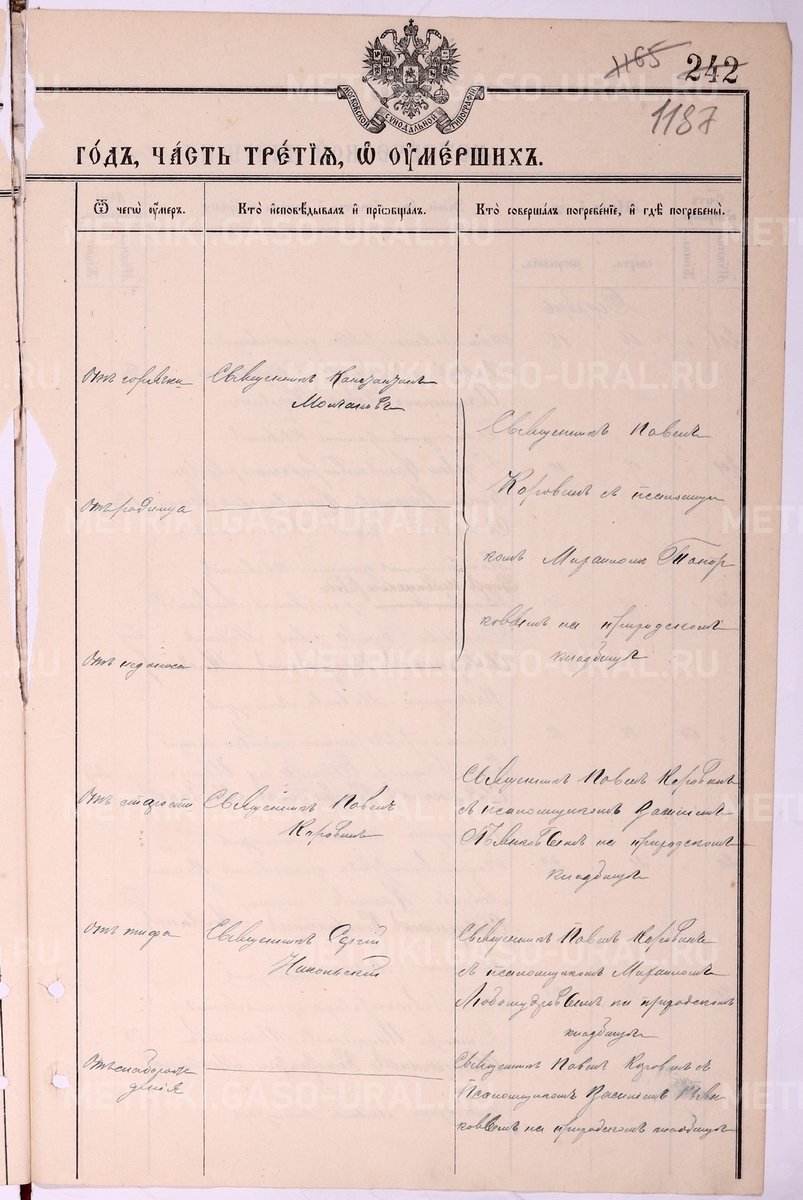 1165
242
1187
МОСКОВСКОЙ СѴНОДАЛЬНОЙ ТИПОГРАФІИ
ГОДЪ, ЧАСТЬ ТРЕТІЯ, Ѡ ОУМЕРШИХЪ.
Ѿ чегѡ оумеръ.
Кто исповѣдывалъ и пріобщалъ.
Кто совершалъ погребеніе, и гдѣ погребены.
Отъ горячки
Священникъ Константинъ
Священникъ Павелъ
Коровинъ съ псаломщи
Отъ родимца
комъ Михаиломъ Топор
ковымъ на приходскомъ
кладбищѣ
Отъ недоноса
Отъ старости
Священникъ Павелъ
Коровинъ
Священникъ Павелъ Коровинъ
съ псаломщикомъ Василіемъ
на приходскомъ
кладбищѣ
Отъ тифа
Священникъ Сергій
Никольскій
Священникъ Павелъ Коровинъ
съ псаломщикомъ Михаиломъ
Любомудровымъ на приходскомъ
кладбищѣ
Отъ слаборож
денія
Священникъ Павелъ Коровинъ съ
Псаломщикомъ Василіемъ
ковымъ на приходскомъ кладбищѣ
METRIKI.GASO-URAL.RU